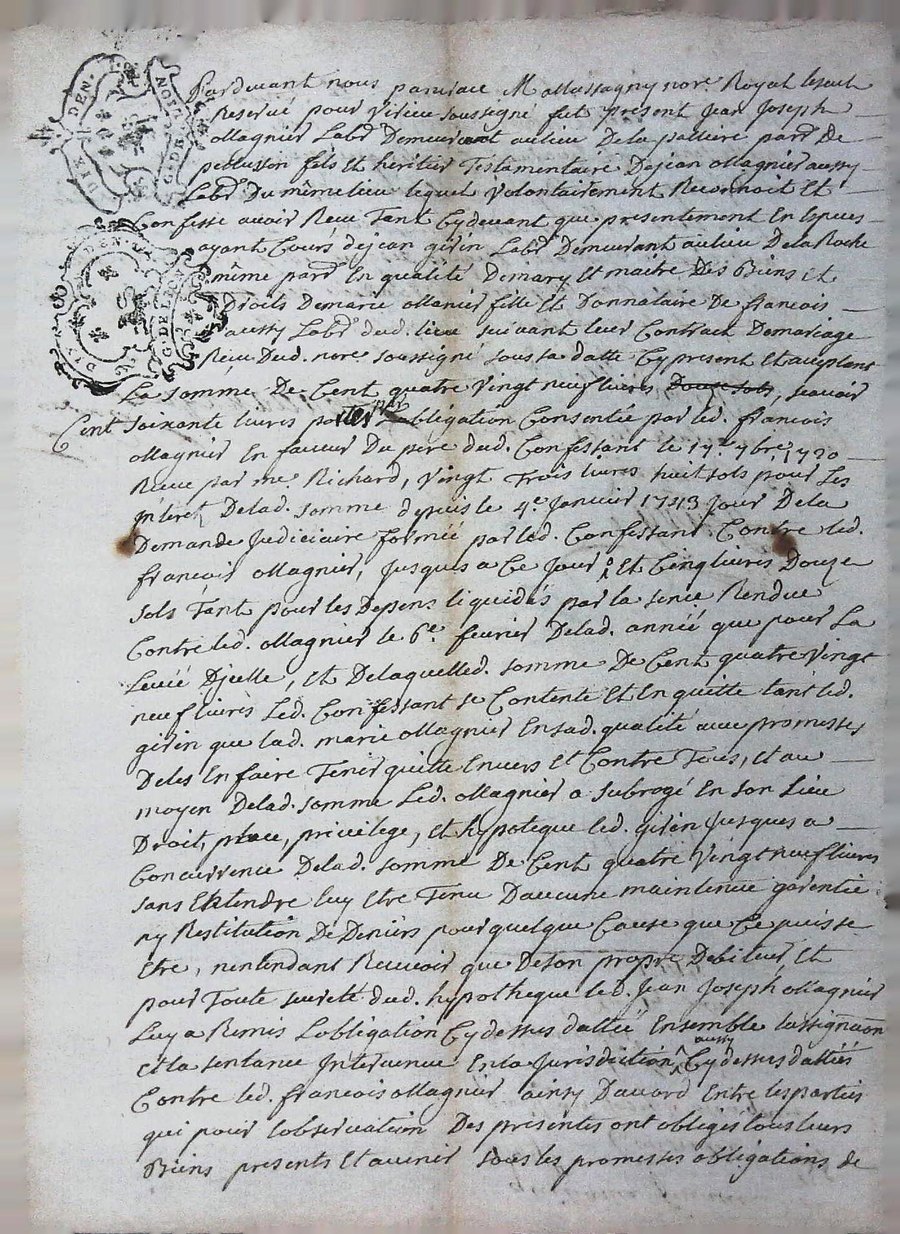 DIX DEN. G. DE LION
DIX DEN. G. DE LION
Pardevant nous M Massagny nore Royal
Reservé pour Virieu soussigné fut present Jean Joseph
Magnier Labr Demeurant au lieu De la pature parse De
pelusson fils Et heritier Testamentaire De jean Magnier aussy
Labr Du même lieu lequel volontairement Reconnoit Et
Confesse avoir Receu Tant Cydevant que presentement En Especes
ayant Cours de jean girin Labr Demeurant au lieu De la Roche
même parse En qualité De mary Et maitre Des Biens Et
Droits De marie Manier fille Et Donnataire De francois
aussy Labr dud. lieu suivant leur Contract De mariage
Receu Dud. nore soussigné sous sa datte Cy present Et acceptant
La somme De Cent quatre vingt neuf livres Douze sols, scavoir
Cent soixante livres pour Lobligation Consentie par led. francois
Magnier En faveur Du pere dud. Confessant le 17e 7bre 1720
Receue par me Richard, vingt Trois livres huit sols pour Les
Interet Delad. somme depuis le 4e Janvier 1743 Jour De la
Demande Judiciaire formée par led. Confessant Contre led.
francois Magnier, Jusques a Ce Jour Et Cinq livres Douze
sols Tant pour les Depens liquidés par la sence Rendue
Contre led. Magnier le 6e fevrier Delad. année que pour La
Levée D'jcelle, Et De laquelle d. somme De Cent quatre vingt
neuf livres Led. Confessant se Contente Et En quitte tant led.
girin que lad. marie Magnier En sad. qualité avec promesses
De les En faire Tenir quitte Envers Et Contre Tous, Et au
moyen Delad. somme Led. Magnier a subrogé En son Lieu
Droit, place, privilege, et hypoteque led. girin Jusques a
Concurrence Delad. somme De Cent quatre vingt neuf livres
sans Entendre luy Etre Tenu Daucune maintenue garentie
ny Restitution De Deniers pour quelque Cause que Ce puisse
Etre, nentendant Recevoir que De son propre Debiteur, Et
pour Toute sureté dud. hypotheque led. Jean Joseph Magnier
Luy a Remis Lobligation Cy dessus dattée Ensemble lassignaon
Et la sentance Intervenue En la Jurisdiction aussy Cy dessus dattées
Contre led. francois Magnier ainsy Daccord Entre les parties
qui pour lobservation Des presentes ont obligés tous leurs
Biens presents Et avenir sous les promesses obligations de